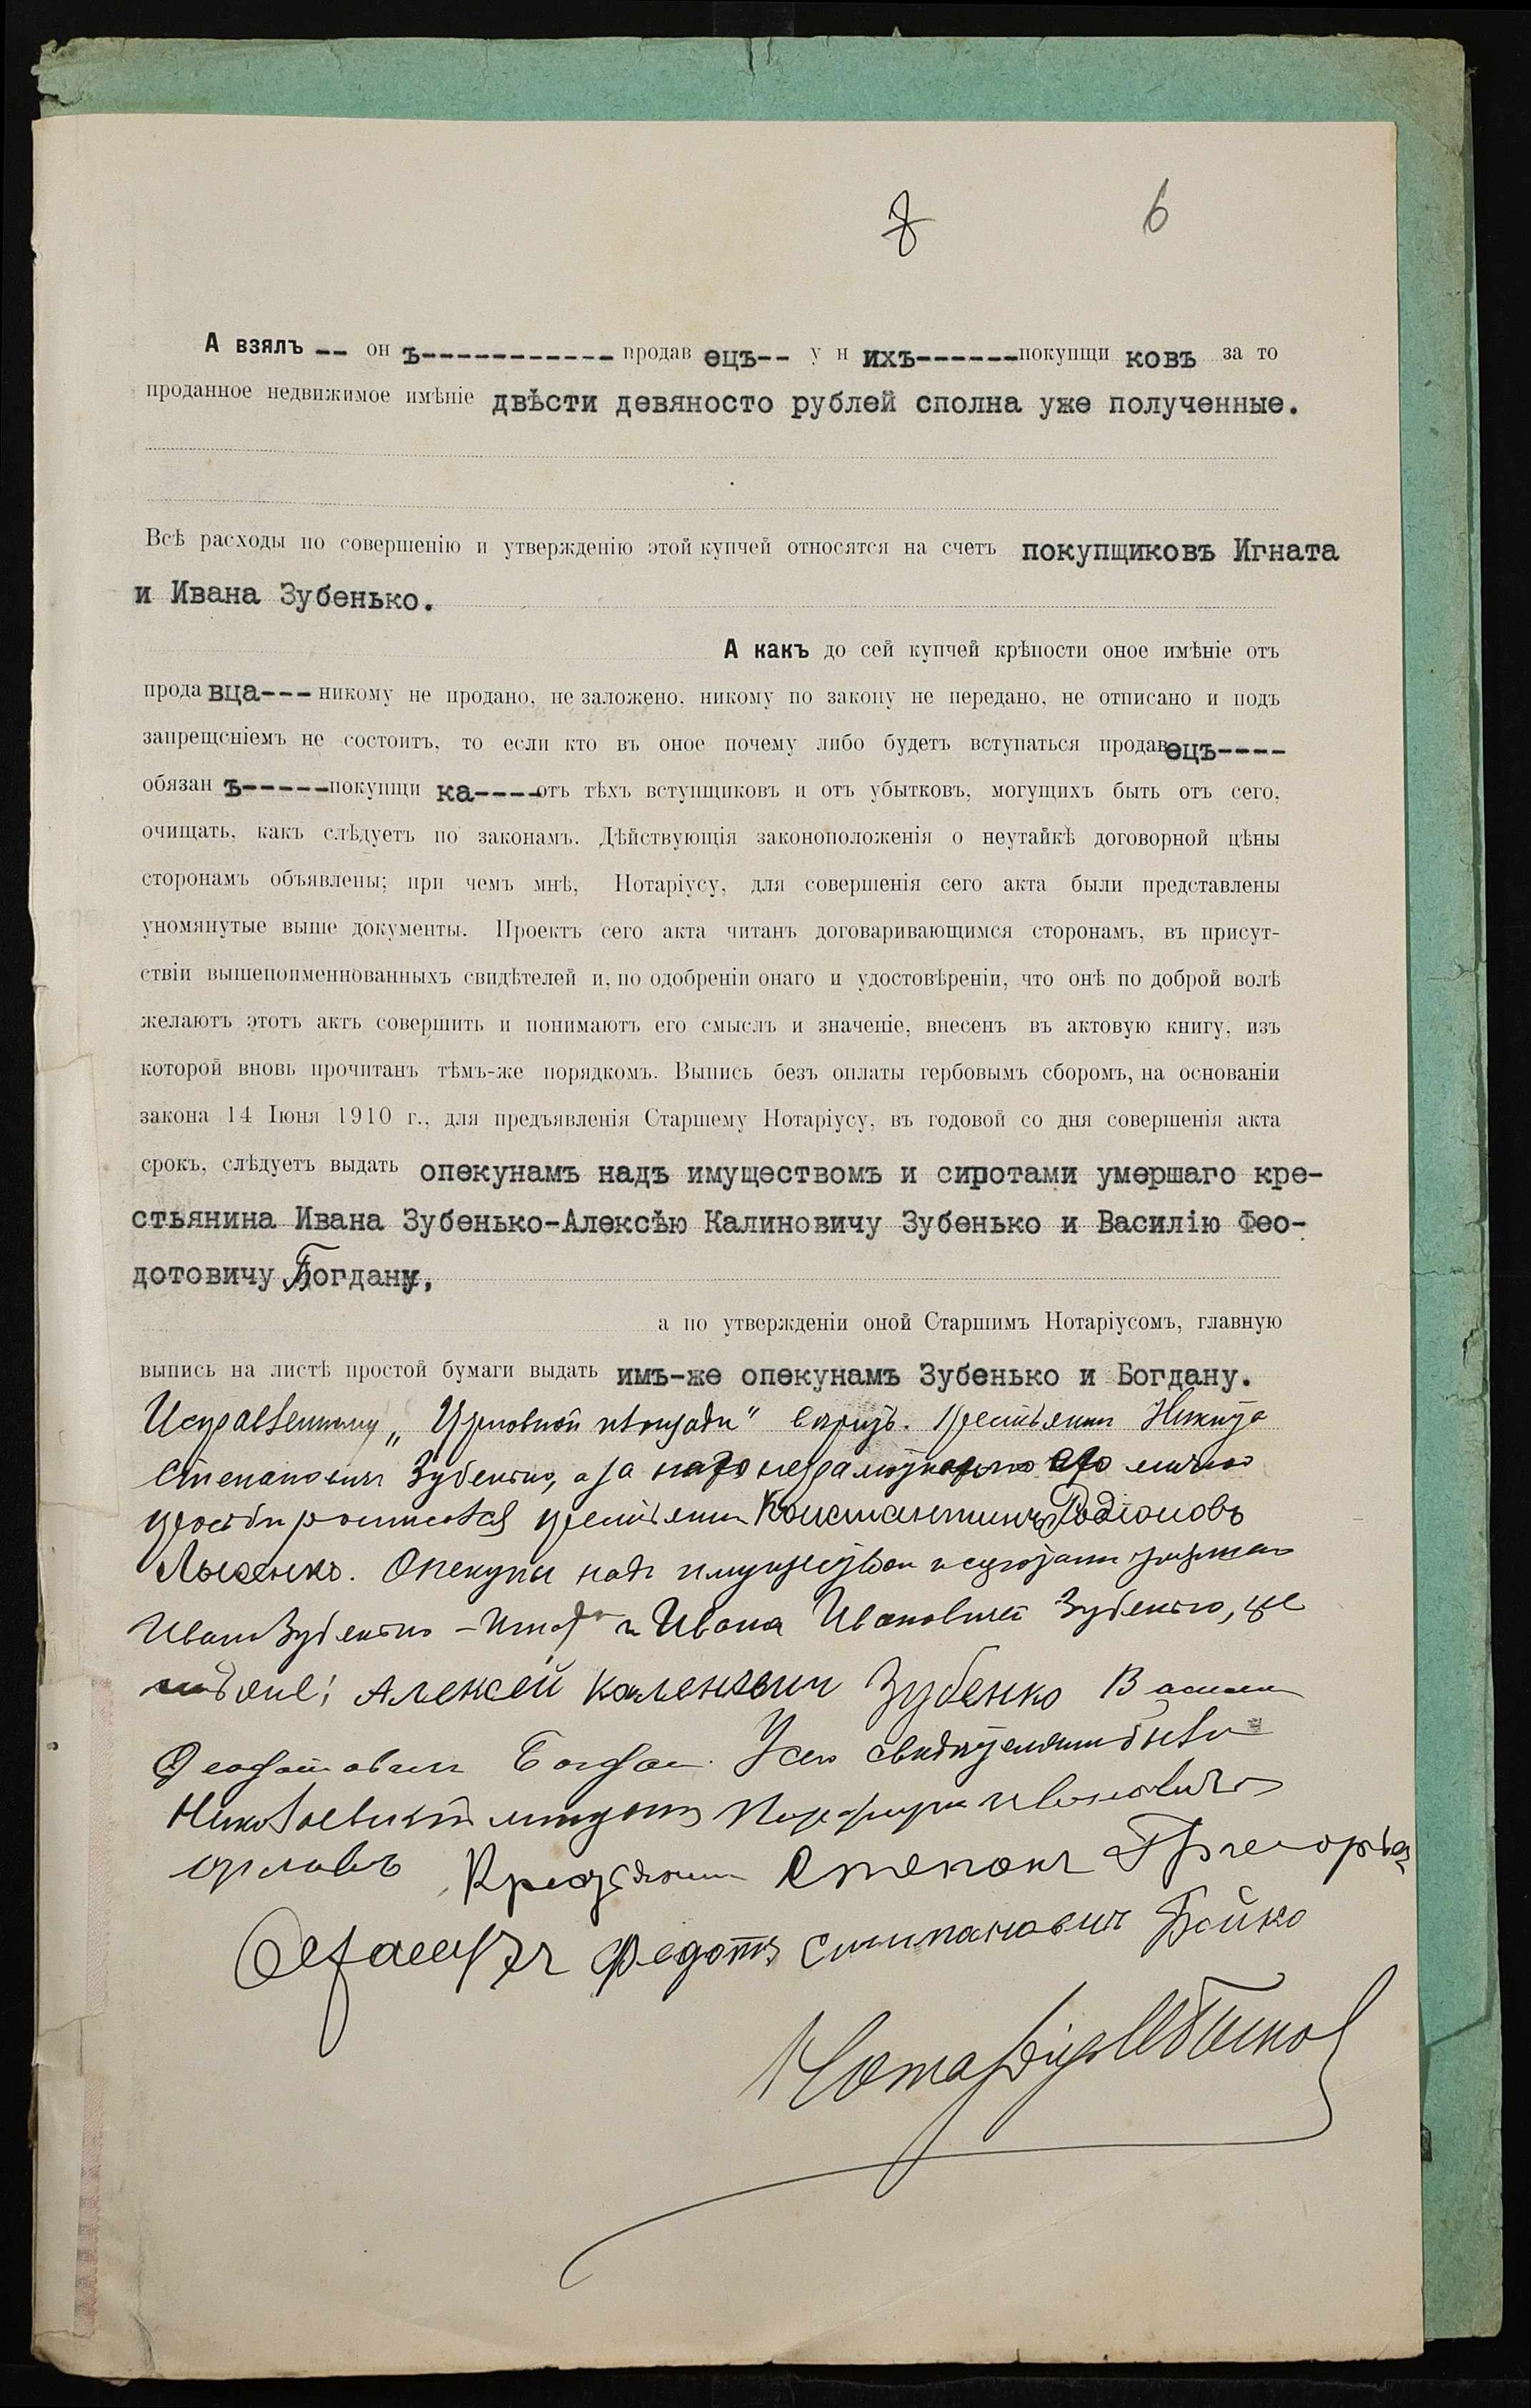 8 6
А взялъ -- он ъ------------ продав ецъ-- у н ихъ------покупщи ковъ за то
проданное недвижимое имѣніе двѣсти девяносто рублей сполна уже полученные.
Всѣ расходы по совершенію и утвержденію этой купчей относятся на счетъ покупщиковъ Игната
и Ивана Зубенько.
А какъ до сей купчей крѣпости оное имѣніе отъ
прода вца--- никому не продано, не заложено, никому по закону не передано, не отписано и подъ
запрещеніемъ не состоитъ, то если кто въ оное почему либо будетъ вступаться продавецъ----
обязан ъ-----покупщи ка----отъ тѣхъ вступщиковъ и отъ убытковъ, могущихъ быть отъ сего,
очищать, какъ слѣдуетъ по законамъ. Дѣйствующія законоположенія о неутайкѣ договорной цѣны
сторонамъ объявлены; при чемъ мнѣ, Нотаріусу, для совершенія сего акта были представлены
упомянутые выше документы. Проектъ сего акта читанъ договаривающимся сторонамъ, въ присут-
ствіи вышепоименнованныхъ свидѣтелей и, по одобреніи онаго и удостовѣреніи, что онѣ по доброй волѣ
желаютъ этотъ актъ совершить и понимаютъ его смыслъ и значеніе, внесенъ въ актовую книгу, изъ
которой вновь прочитанъ тѣмъ-же порядкомъ. Выпись безъ оплаты гербовымъ сборомъ, на основаніи
закона 14 Іюня 1910 г., для предъявленія Старшему Нотаріусу, въ годовой со дня совершенія акта
срокъ, слѣдуетъ выдать опекунамъ надъ имуществомъ и сиротами умершаго кре-
стьянина Ивана Зубенько-Алексѣю Калиновичу Зубенько и Василію Фео-
дотовичу Богдану,
а по утвержденіи оной Старшимъ Нотаріусомъ, главную
выпись на листѣ простой бумаги выдать имъ-же опекунамъ Зубенько и Богдану.
Исправленному „Церковной площади" вѣрить. Крестьянин Никита
Степанович Зубенько, а за него неграмотного его личной
просьбѣ росписался крестьянин Константинъ Родіоновъ
Лысенко. Опекуны надъ имуществом и сиротами умершаго
Ивана Зубенько - Игната и Ивана Ивановичей Зубенько,
Алексей Каленович Зубенко Василий
Феодотович Богдан. У сего свидѣтелями были
Порфирий Ивановичъ
орловъ Крестянин Степанъ Григорьев
Федотъ Степанович Бойко
Нотаріусъ